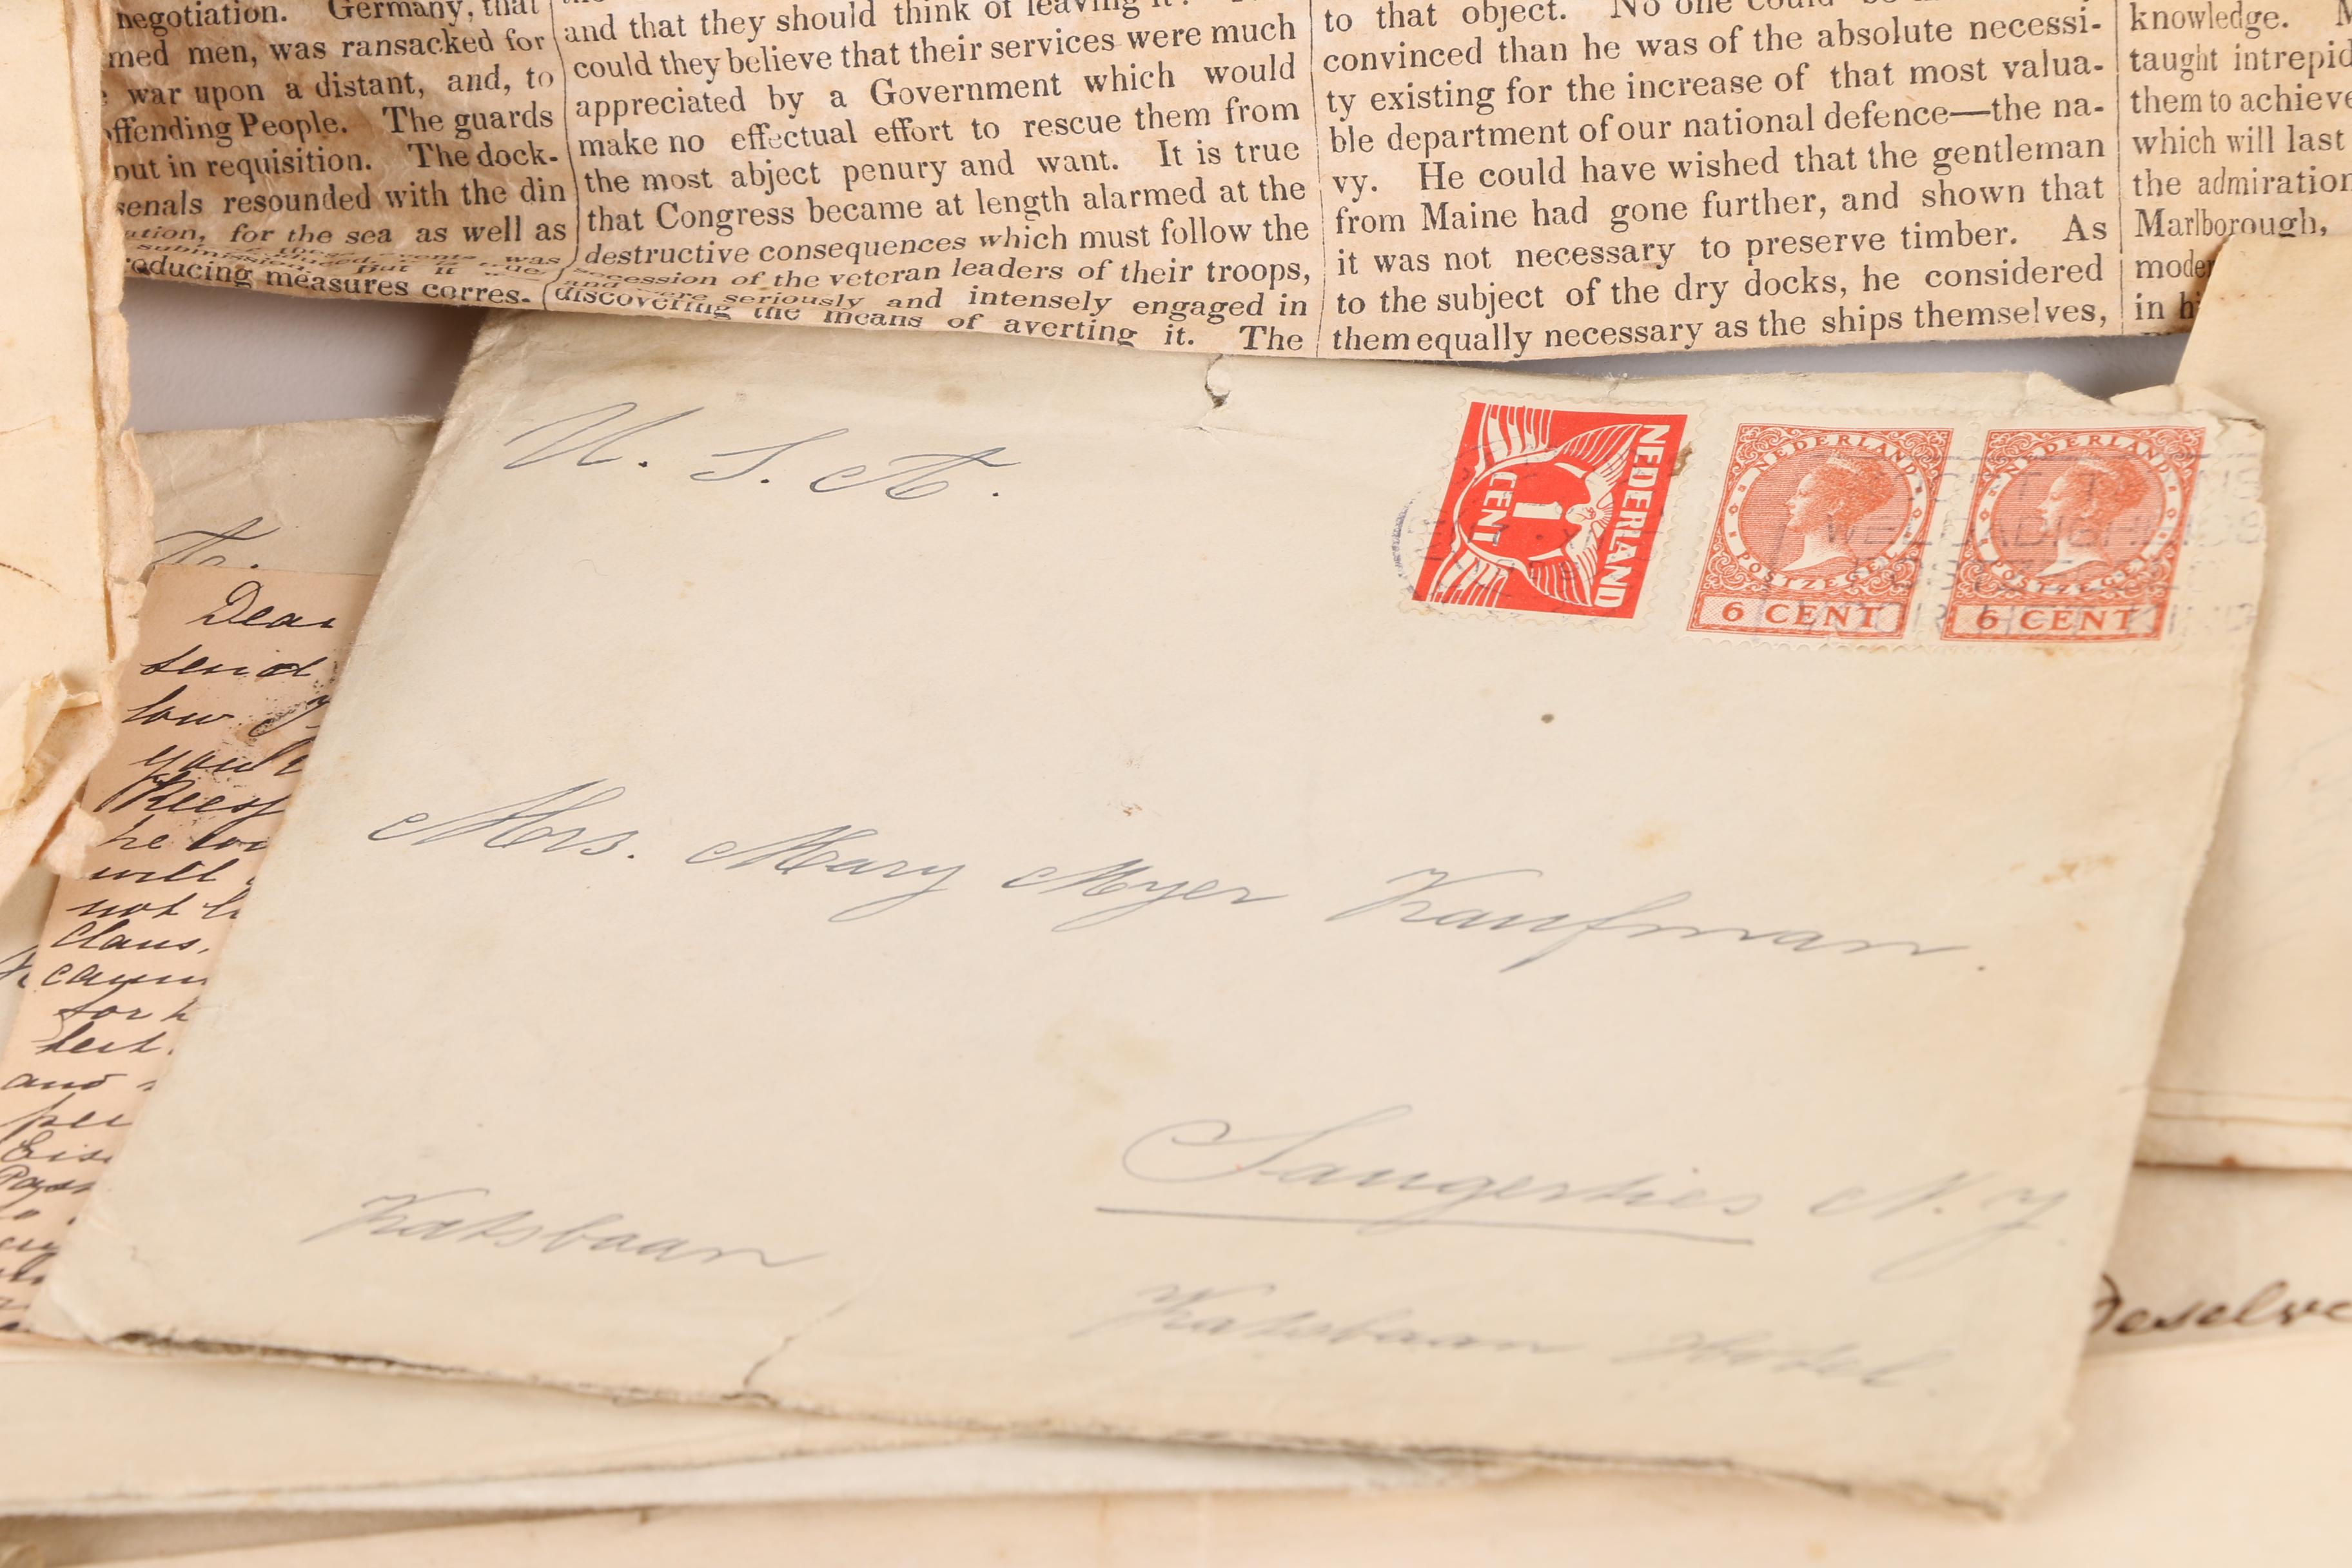 negotiation. Germany, that
med men, was ransacked for
war upon a distant, and, to
offending People. The guards
put in requisition. The dock-
senals resounded with the din
ation, for the sea as well as
roducing measures corres-
and that they should think of leaving it?
could they believe that their services were much
appreciated by a Government which would
make no effectual effort to rescue them from
the most abject penury and want. It is true
that Congress became at length alarmed at the
destructive consequences which must follow the
secession of the veteran leaders of their troops,
and were seriously and intensely engaged in
discovering the means of averting it. The
to that object. No one could be
convinced than he was of the absolute necessi-
ty existing for the increase of that most valua-
ble department of our national defence—the na-
vy. He could have wished that the gentleman
from Maine had gone further, and shown that
it was not necessary to preserve timber. As
to the subject of the dry docks, he considered
them equally necessary as the ships themselves,
knowledge.
taught intrepid
them to achieve
which will last
the admiration
Marlborough,
mode
in hi
U. S. A.
NEDERLAND
1
CENT
NEDERLAND
POSTZEGEL
6 CENT
NEDERLAND
POSTZEGEL
6 CENT
Mrs. Mary Myer Kaufman.
Saugerties N. Y.
Katsbaan
Katsbaan Hotel.
To.
Dear
send
low
your
he
will
not
Claus,
for
and